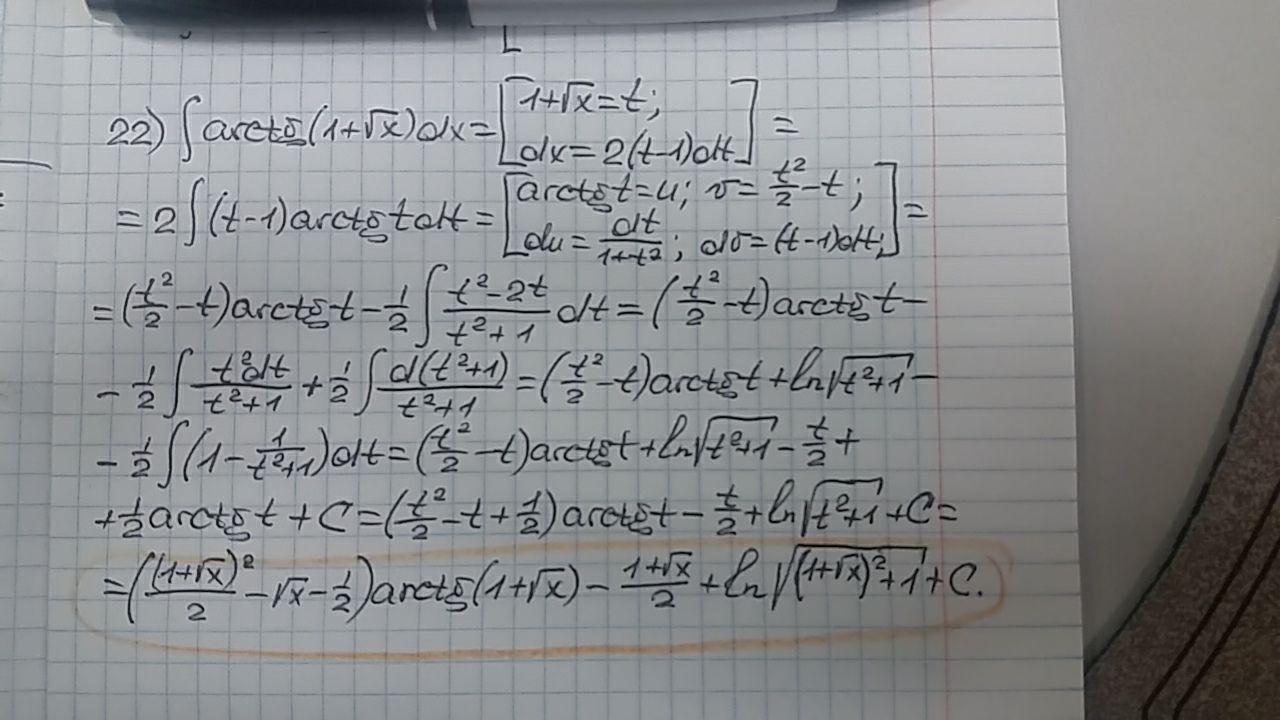 22) ∫ arctg(1+√x)dx = [1+√x = t; dx = 2(t-1)dt] =
= 2∫(t-1)arctg t dt = [arctg t = u; v = t²/2 - t; du = dt/(1+t²); dv = (t-1)dt;] =
= (t²/2 - t)arctg t - 1/2 ∫ (t²-2t)/(t²+1) dt = (t²/2 - t)arctg t -
- 1/2 ∫ t²dt/(t²+1) + 1/2 ∫ d(t²+1)/(t²+1) = (t²/2 - t)arctg t + ln√(t²+1) -
- 1/2 ∫(1 - 1/(t²+1))dt = (t²/2 - t)arctg t + ln√(t²+1) - t/2 +
+ 1/2 arctg t + C = (t²/2 - t + 1/2)arctg t - t/2 + ln√(t²+1) + C =
= ((1+√x)²/2 - √x - 1/2)arctg(1+√x) - (1+√x)/2 + ln√((1+√x)²+1) + C.